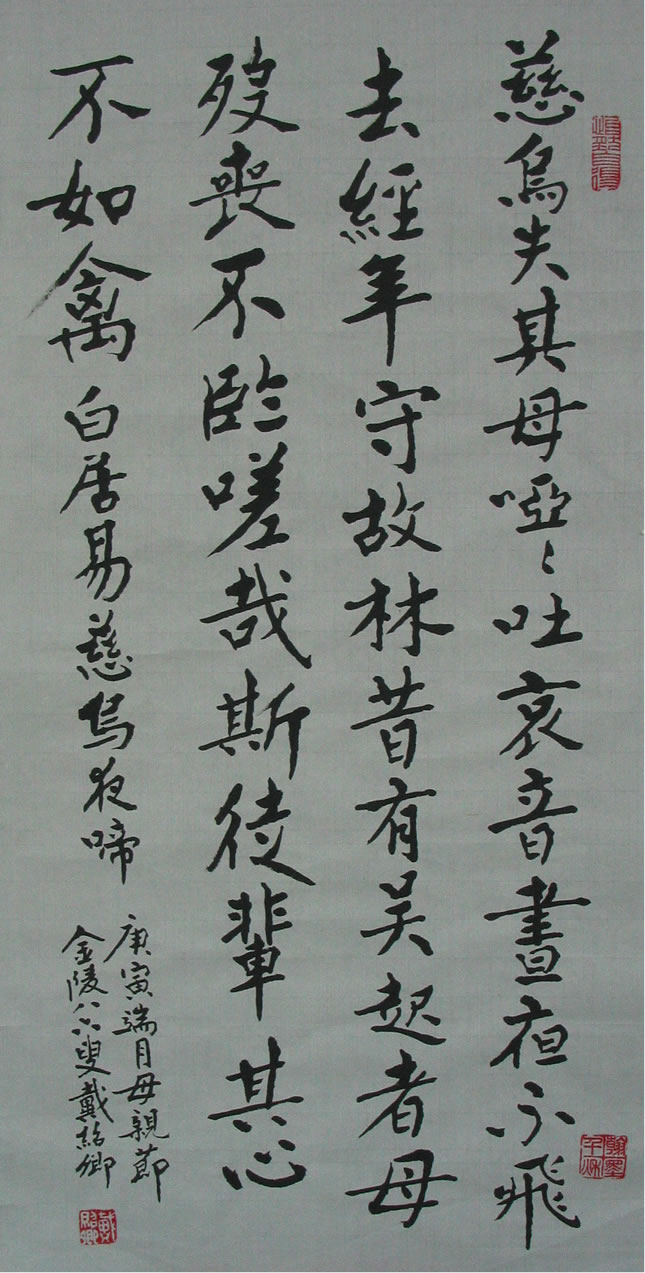 慈烏失其母啞々吐哀音晝夜不飛
去經年守故林昔有吳起者母
歿喪不臨嗟哉斯徒輩其心
不如禽 白居易慈烏夜啼
庚寅端月母親節
金陵八六叟戴紹卿
翰墨千秋